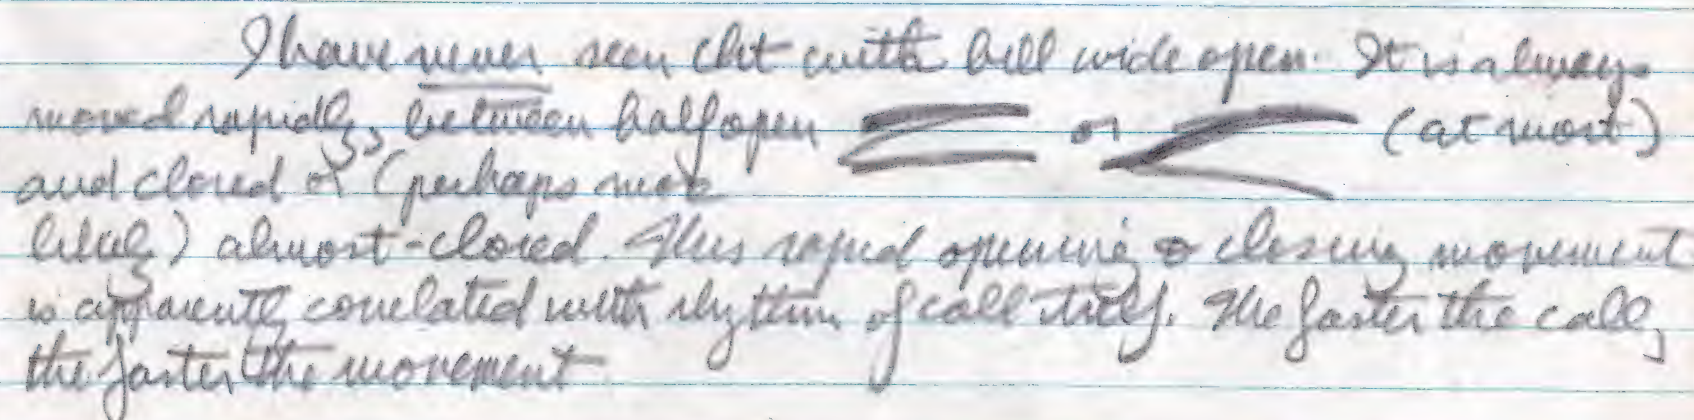 I have never seen Cht with bill wide open. It is always
moved rapidly, between half open or (at most)
and closed or (perhaps more
likely) almost-closed. This rapid opening & closing movement
is apparently correlated with rhythm of call itself. The faster the call,
the faster the movement